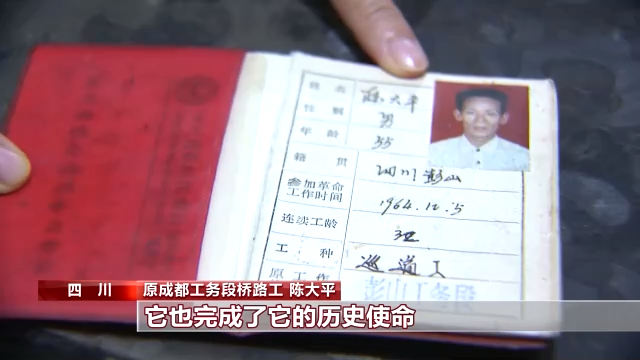 姓名 陈大平
性别 男
年龄 55
籍贯 四川彭山
参加革命工作时间 1964.12.5
连续工龄
工种 巡道工
原工作
彭山工务段
四川 原成都工务段桥路工 陈大平
它也完成了它的历史使命